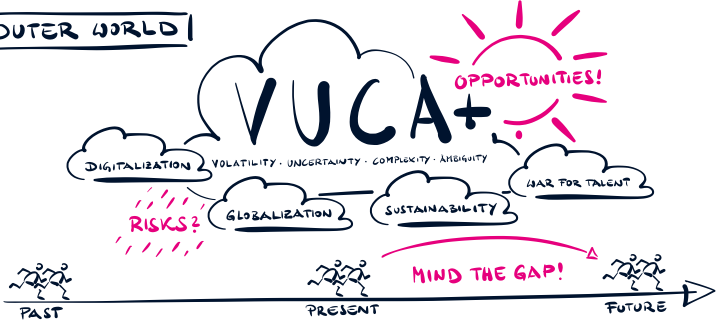 OUTER WORLD
OPPORTUNITIES!
VUCA+
VOLATILITY · UNCERTAINTY · COMPLEXITY · AMBIGUITY
DIGITALIZATION
WAR FOR TALENT
GLOBALIZATION
SUSTAINABILITY
RISKS?
MIND THE GAP!
PAST
PRESENT
FUTURE